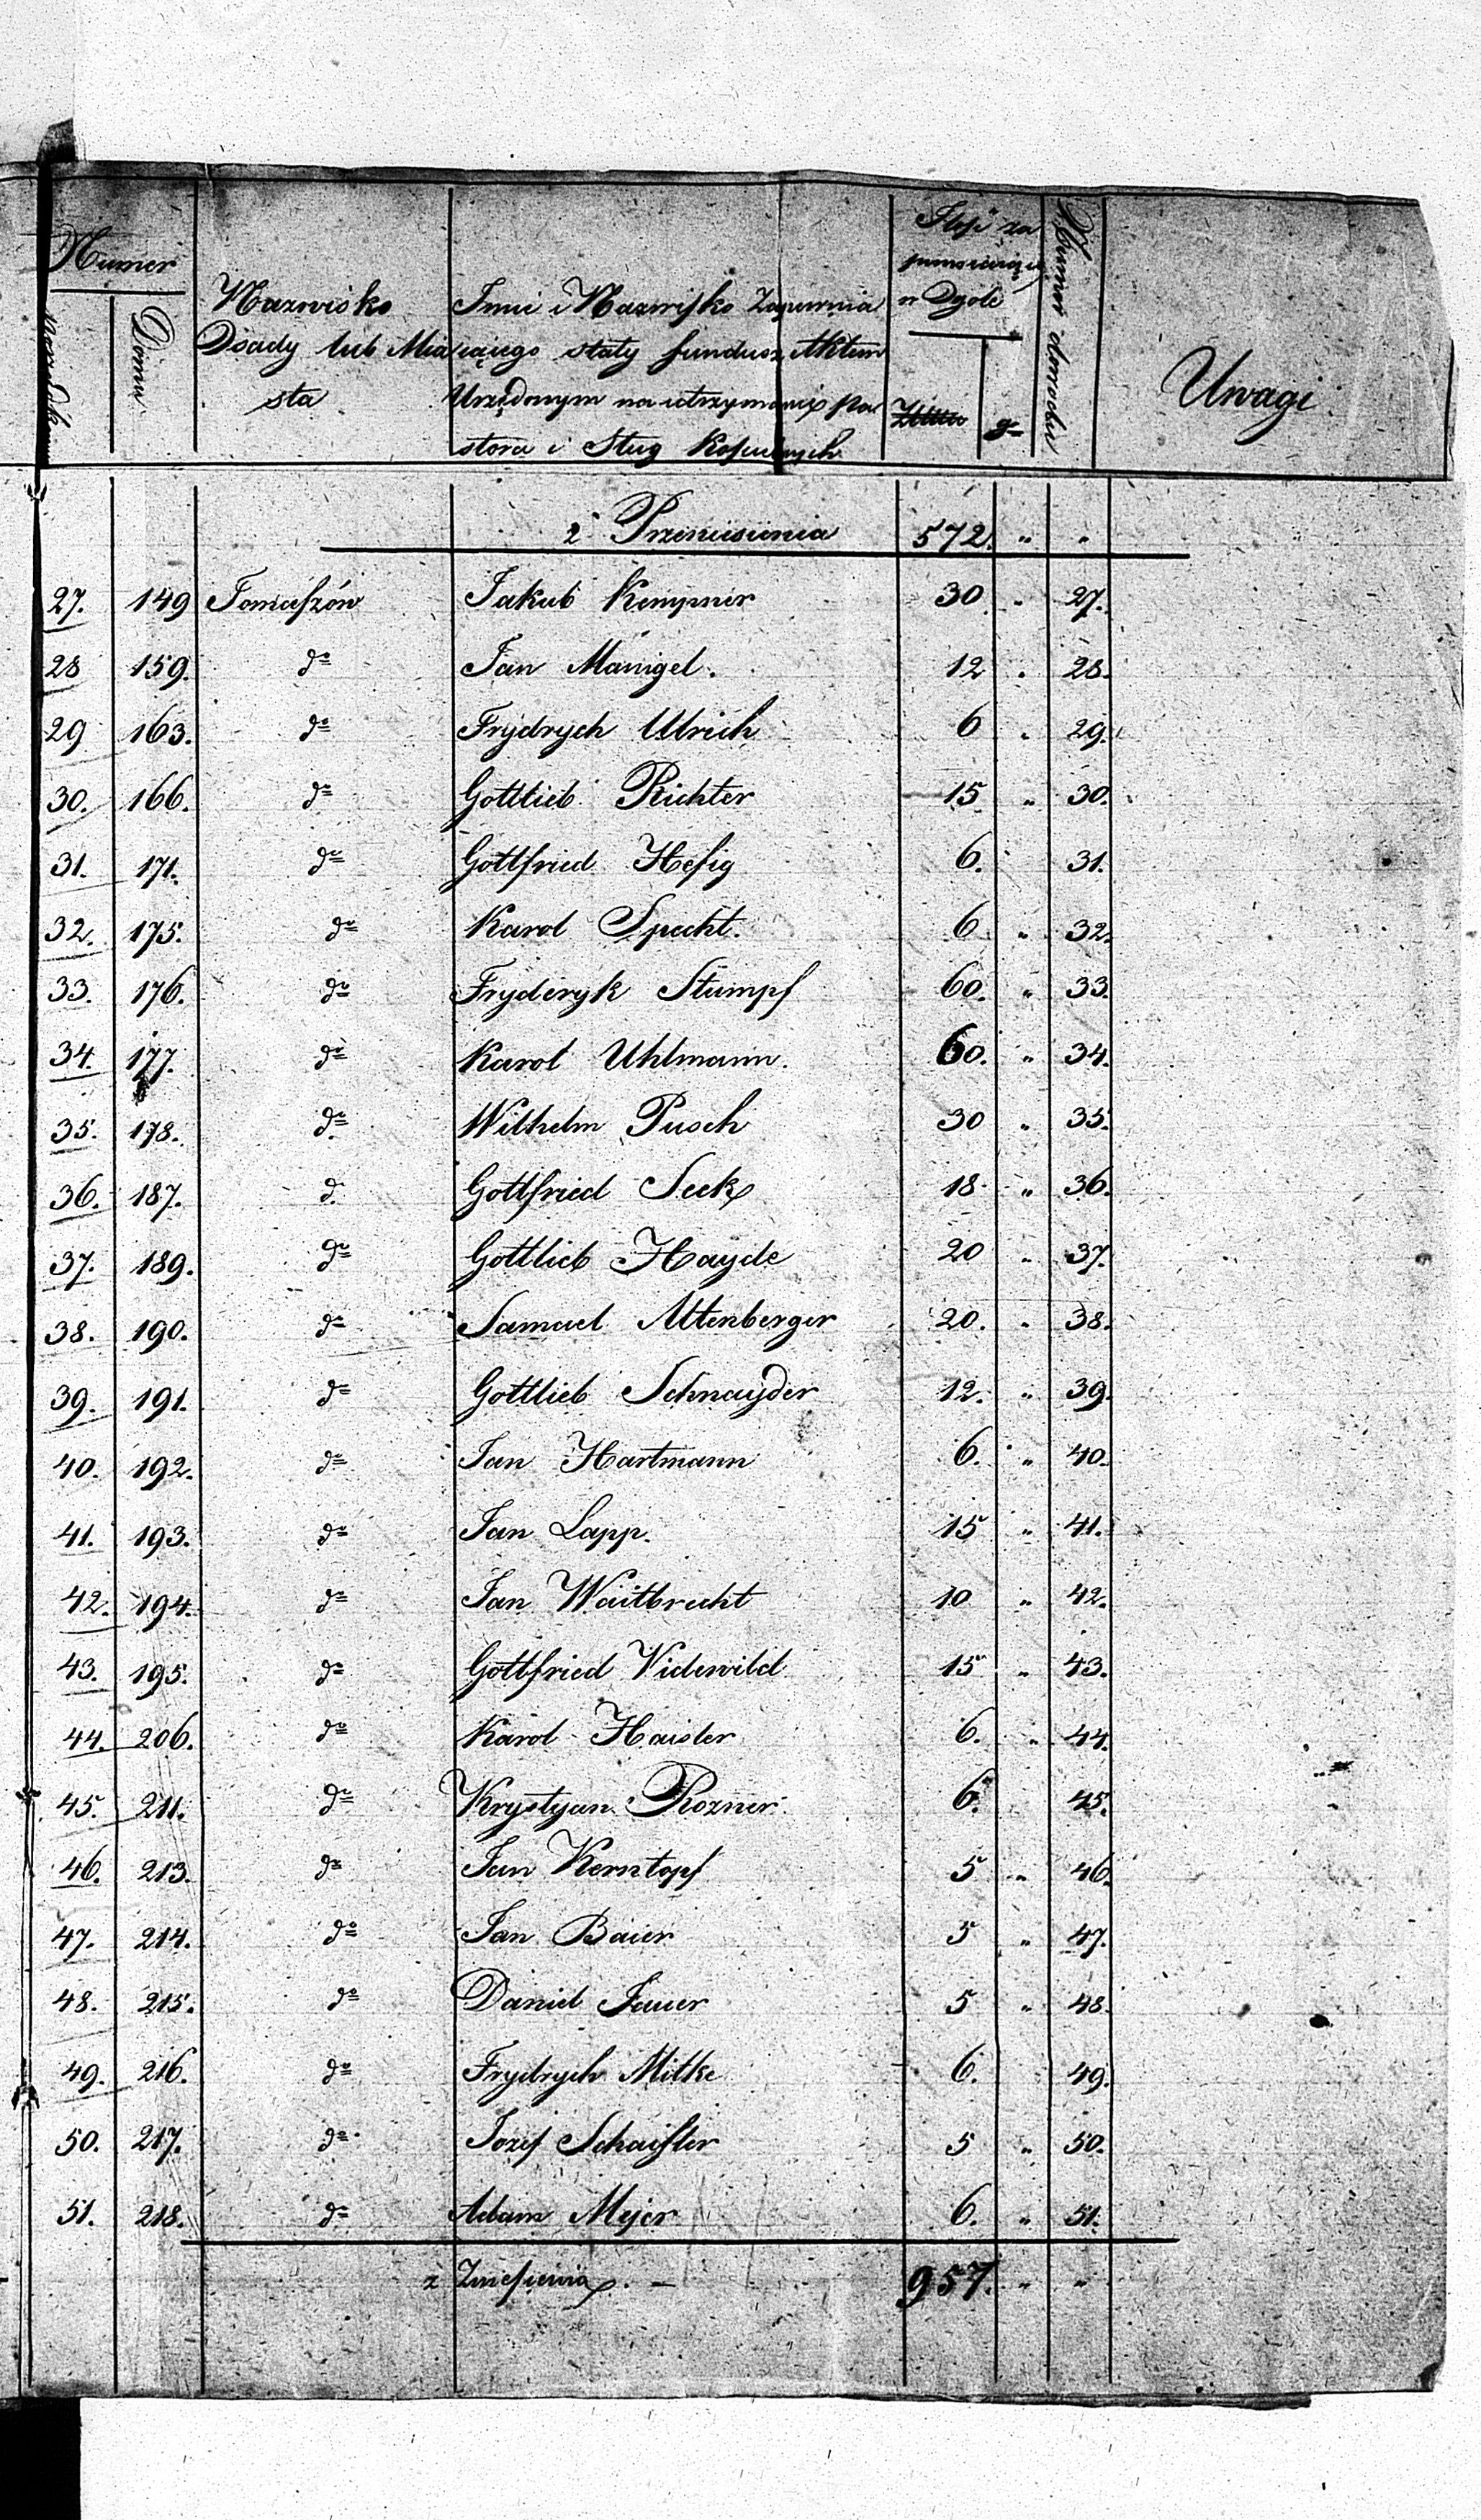 Numer
porządkowy
Domu
Nazwisko
Osady lub Mia
sta
Imie i Nazwisko Zapewnia
iącego stały fundusz Aktem
Urzędowym na utrzymanie Pa
stora i Sług Kościelnych
Ilość za
w Ogole
gr
Numer dowodu
Uwagi
z Przeniesienia 572. " "
27. 149 Tomaszów Jakub Kempner 30 . 27.
28 159. do Jan Manigel. 12 . 28.
29 163. do Frydrych Ulrich 6 . 29.
30. 166. do Gottlieb Richter 15 " 30.
31. 171. do Gottfried Hefsig 6. 31.
32. 175. do Karol Specht. 6 " 32.
33. 176. do Fryderyk Stumpf 60. " 33.
34. 177. do Karol Uhlmann. 60. " 34.
35. 178. do Wilhelm Pusch 30 " 35.
36. 187. d. Gottfried Seek 18 " 36.
37. 189. do Gottlieb Hayde 20 " 37.
38. 190. do Samuel Attenberger 20. " 38.
39. 191. do Gottlieb Schnayder 12. " 39.
40. 192. do Jan Hartmann 6. " 40.
41. 193. do Jan Lapp. 15 " 41.
42. 194. do Jan Waitbrecht 10 " 42.
43. 195. do Gottfried Videwild 15 " 43.
44. 206. do Karol Haisler 6. " 44.
45. 211. do Krystyan Rozner. 6. 45.
46. 213. do Jan Kerntopf 5 " 46.
47. 214. do Jan Baier 5 " 47.
48. 215. do Daniel Jauer 5 " 48.
49. 216. do Frydrych Mitke 6. 49.
50. 217. do Jozef Schaifler 5 " 50.
51. 218. do Adam Mejer 6. " 51.
z Zniesienia. — 957. " "